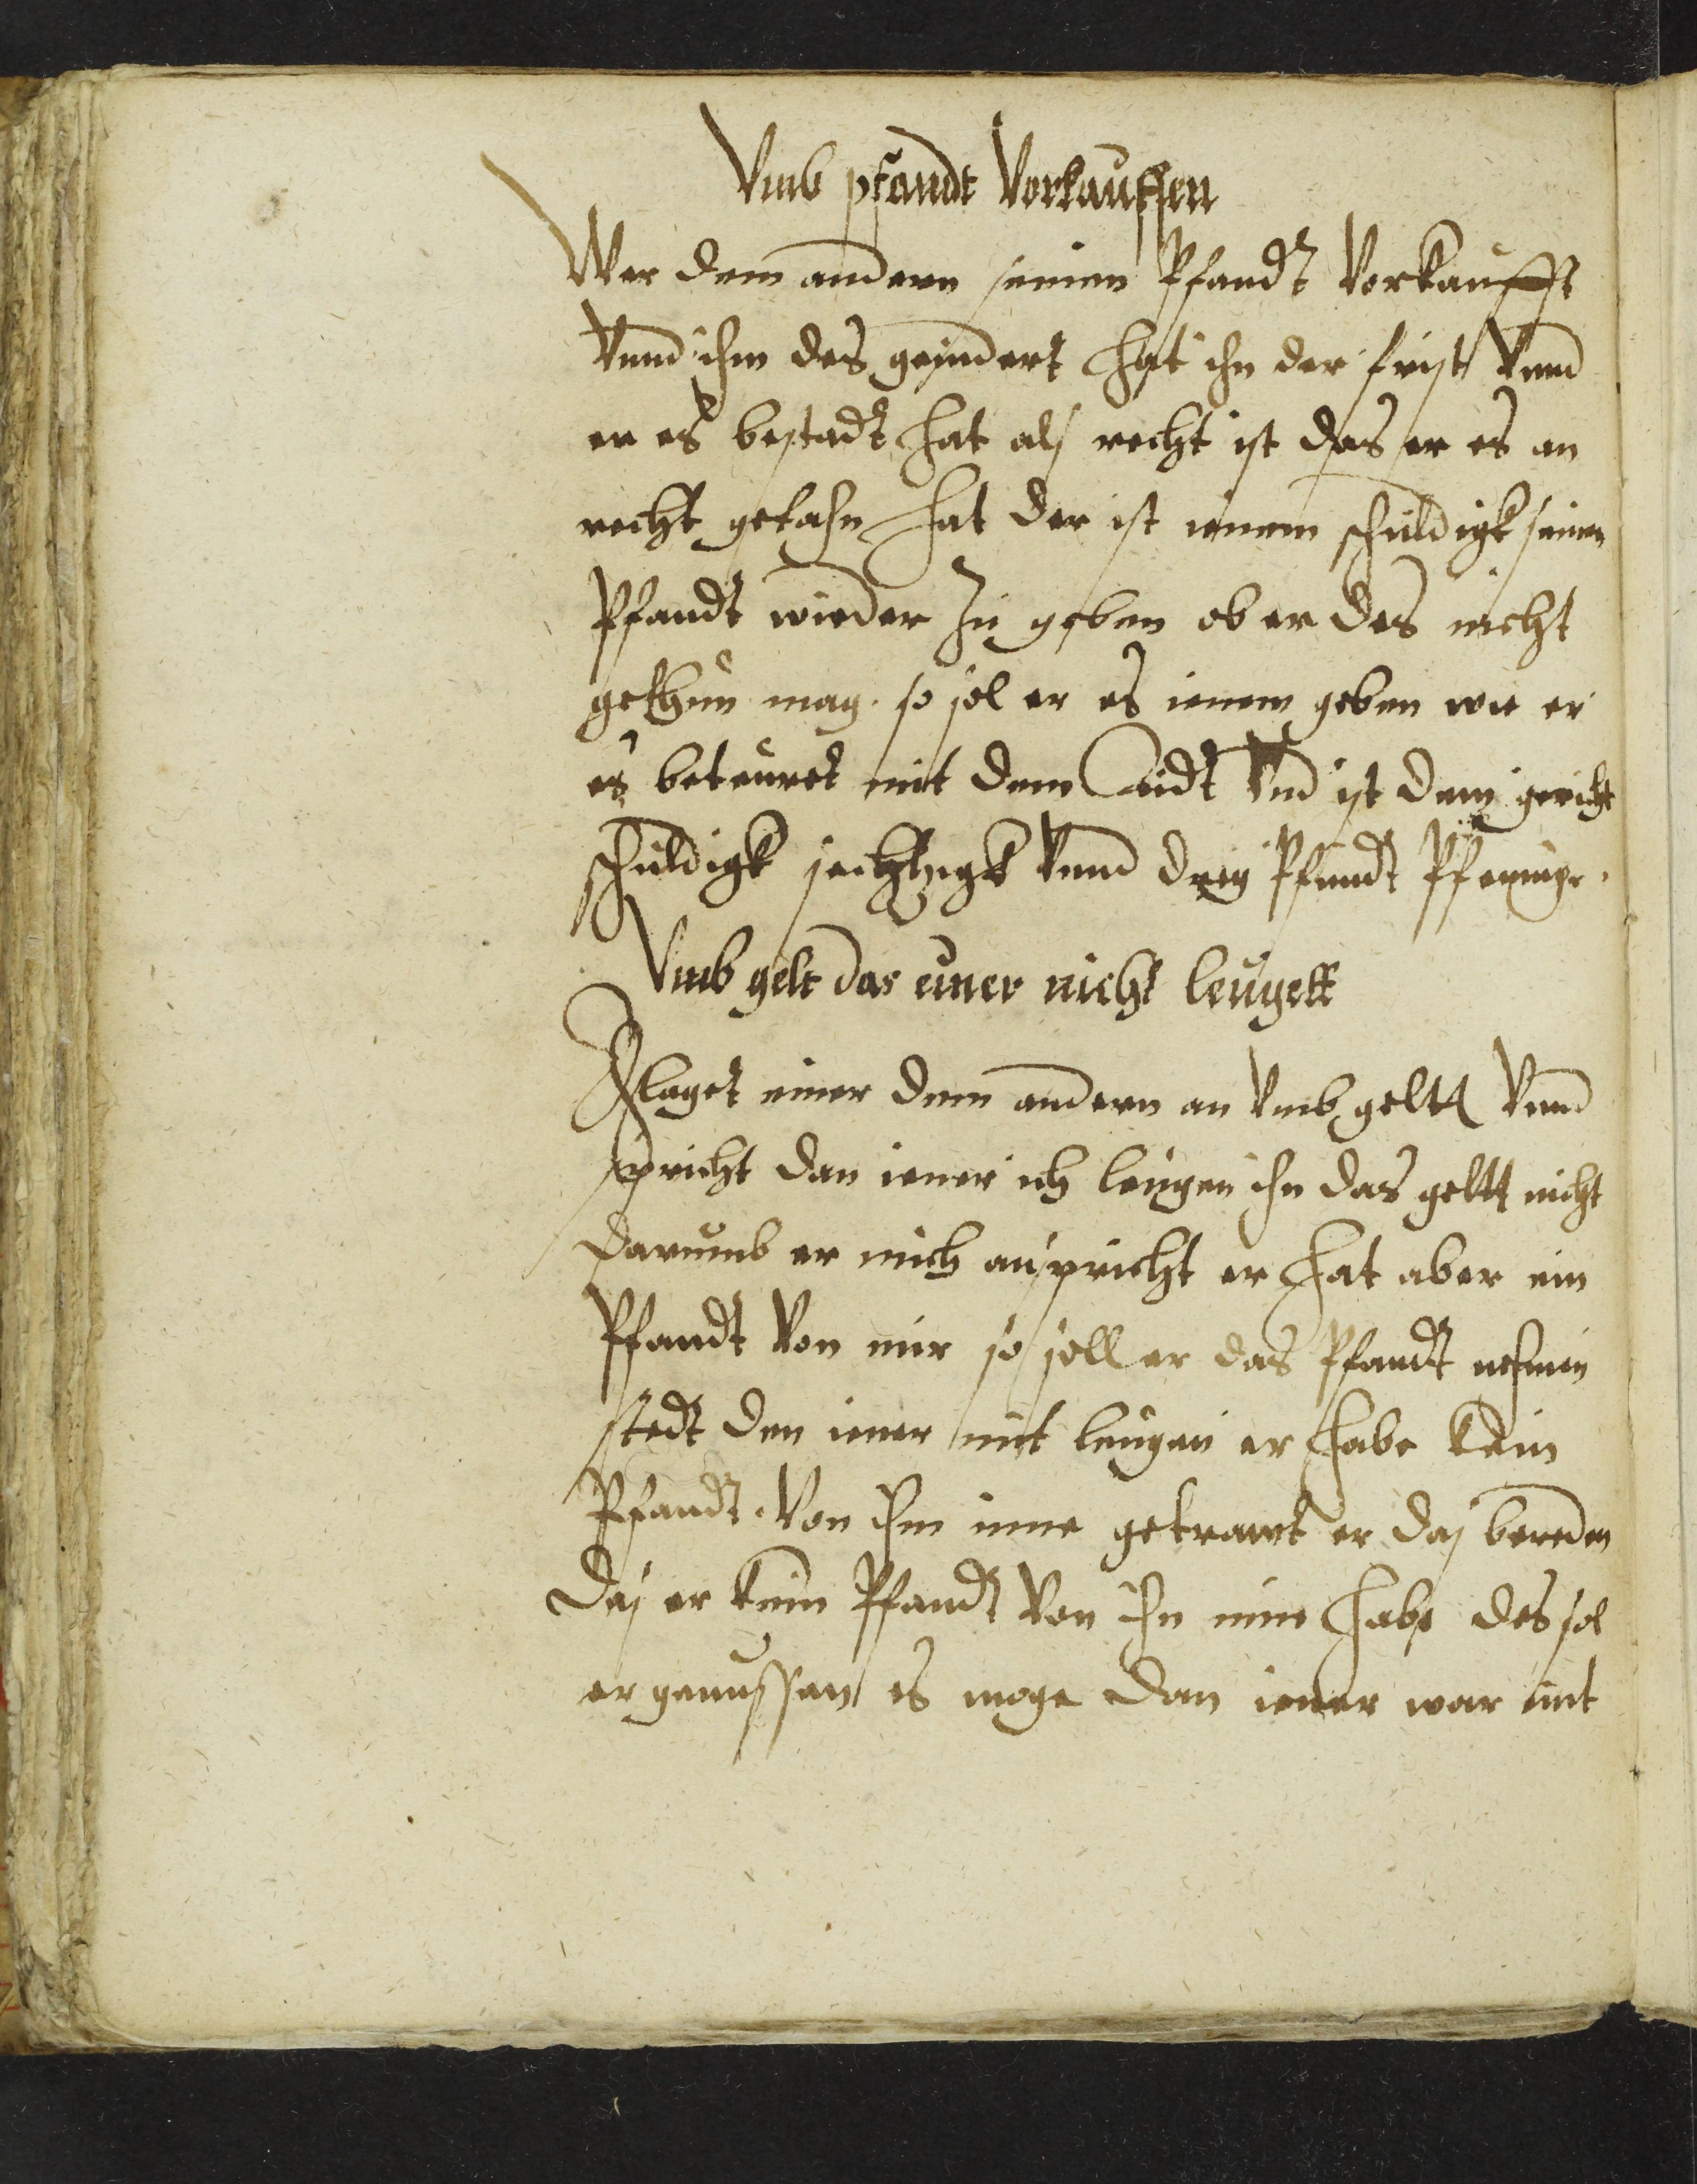 Vmb pfandt Vorkauffen
Wer dem andern seinen Pfandt Vorkaufft
Vnnd ihm des geindert hat ihn der frist Vnnd
er es bestadt hat als recht ist das er es an
recht gethan hat der ist ienem schuldigk seinen
Pfandt wieder zu geben ob er des nicht
gethun mag. so sol er es ienem geben wie er
es beteuret mit dem Eidt Vnd ist dem gericht
schuldigk sechtzigk Vnnd dreÿ Pfundt Pfenninge.
Vmb gelt das einer nicht leugett
Klaget einer dem andern an Vmb geltt Vnnd
spricht dan iener ich leugen ihn das geltt nicht
darumb er mich anspricht er hat aber ein
Pfandt Von mir so soll er das Pfandt nehmen
stedt den iener mit leugen er habe kein
Pfandt. Von ihm inne getrawt er das bereden
Das er kein Pfandt Von ihn inne habe des sol
er genussen es moge dan iener war mit